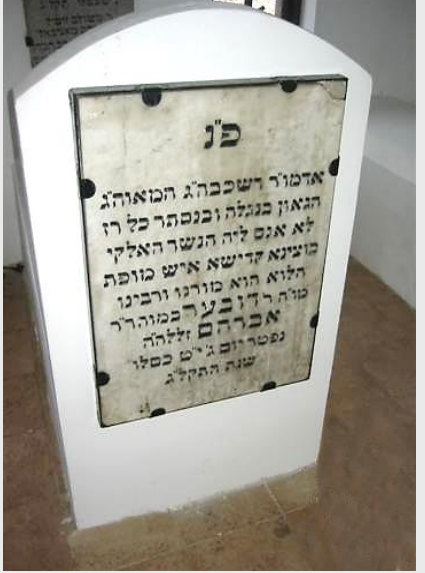 פ"נ
אדמו"ר רשכבה"ג המאוה"ג
הגאון בנגלה ובנסתר כל רז
לא אנס ליה הנשר האלקי
בוצינא קדישא איש מופת
הלוא הוא מורנו ורבינו
מו"ה ר דובער במוהר"ר
אברהם זללה"ה
נפטר יום ג' י"ט כסלו
שנת התקל"ג